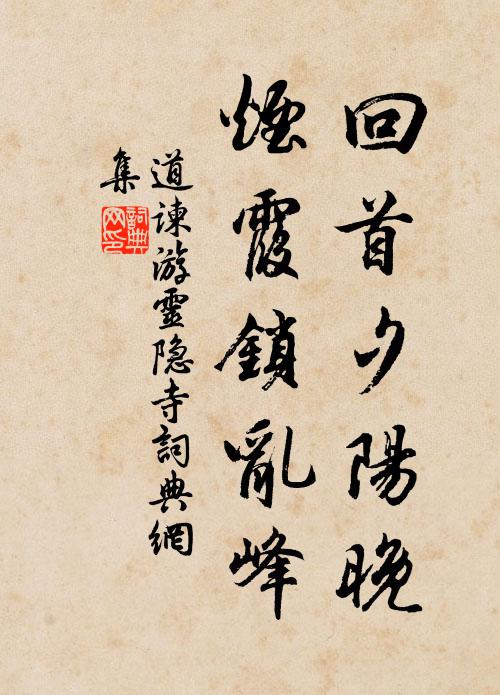 回首夕陽晚
煙霞鎖亂峰
道諫游靈隐寺詞典網
集
詞典網印